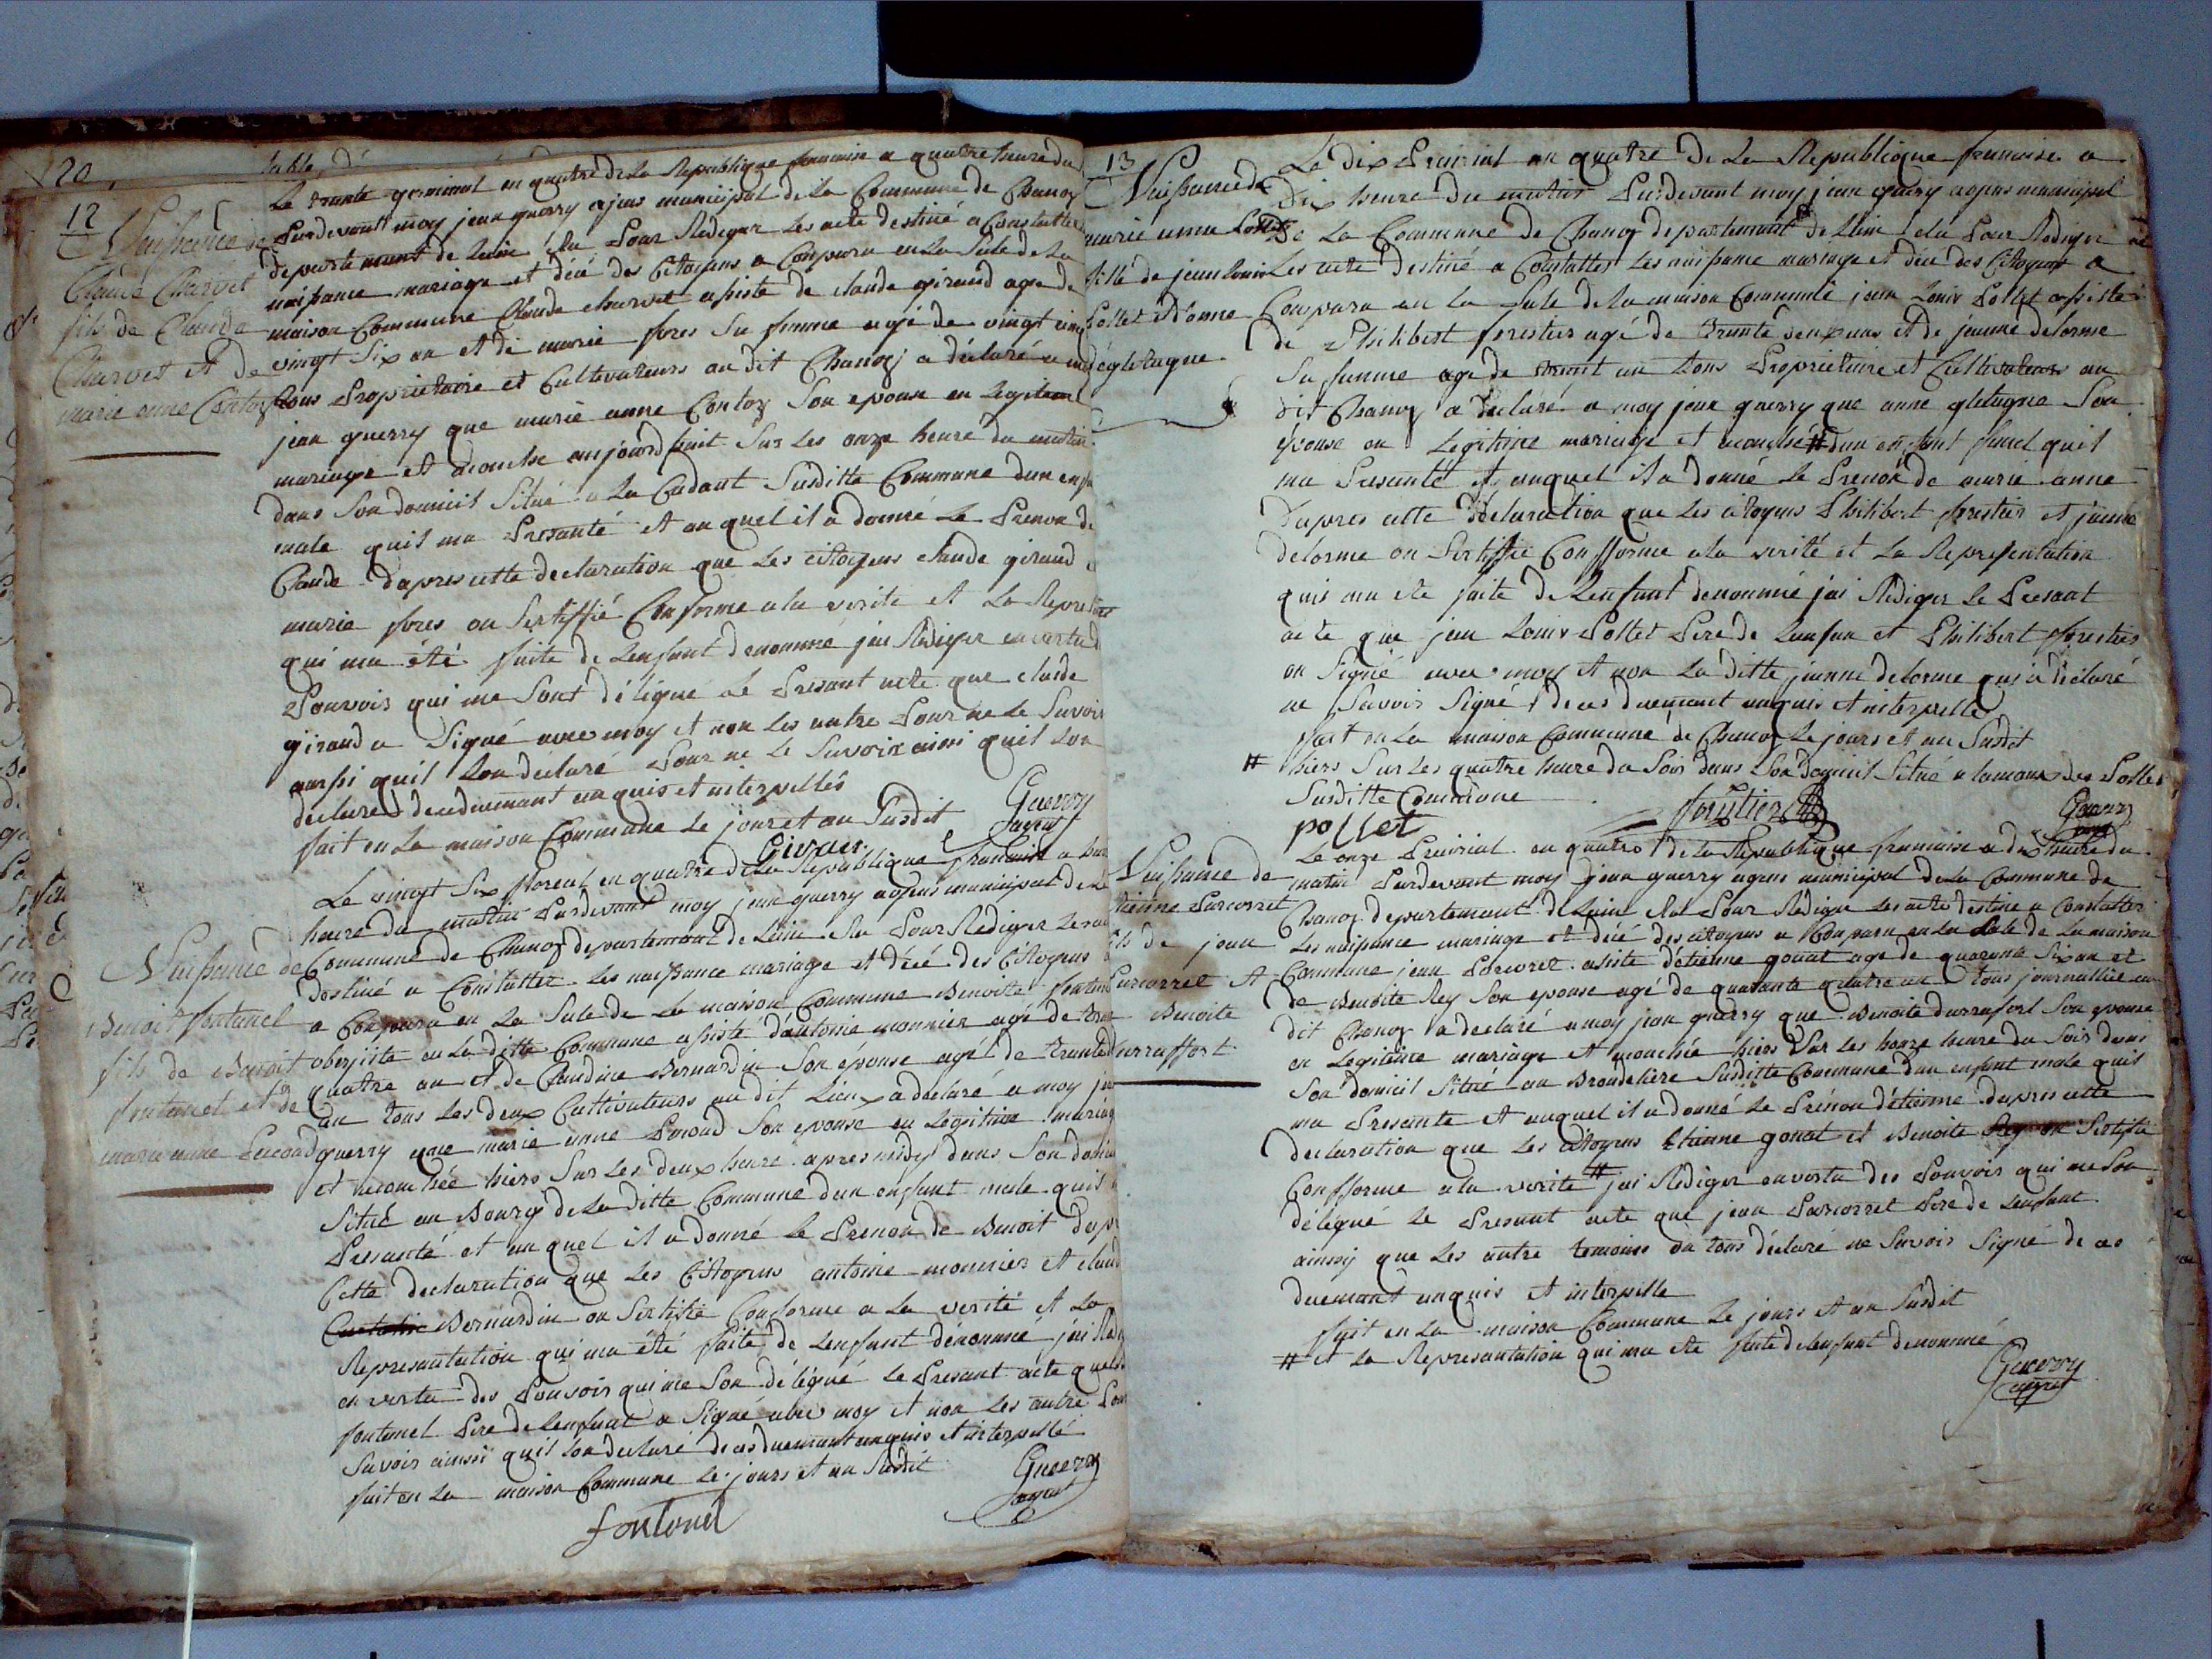 120
12
Naissance de
Claude Charvet
fils de Claude
Charvet et de
marie anne Contoz
Le trante germinal en quatre de La Republique francaise a quatre heure du
Pardevant moy jean guerry agens municipal de La Commune de Chanoz
departemant de Lain Elu Pour Rediger Les acte destiné a Constatter
naissance mariage et décé des Citoyens a Conparu en La Sale de La
maison Commune Claude charvet assiste de claude giraud age de
vingt Six an et de marie fores Sa femme agé de vingt cinq
tous Proprietaire et Cultivateurs au dit Chanoz a déclaré a moy
jean guerry que marie anne Contoz Son epouse en Legitime
mariage et acouche aujourd huit Sur Les onze heure du matin
dans Son domicil Situé a La Cadant Susditte Commune dun enfan
male quil ma Presanté et auquel il a donné Le Prenon de
Claude dapres cette declaration que Les citoyens claude giraud et
marie fores on Sertiffié Conforme a la verite et La Represen
qui ma été faite de Lenfant denommé jai Rediger en vertu d
Pouvoir qui me Sont délégué Le Presant acte que claude
giraud a Signé avec moy et non Les autre Pour ne Le Savoir
aussi quil Lon declaré Pour ne Le Savoir ainsi quil Lon
declaré de ceduemant enquis et interpellés
fait en La maison Commune Le jour et an Susdit
Givau
Guerry
agent
Naissance de
Benoit fontanel
fils de Benoit
fontanel et de
marie anne Pacoud
Le vingt Six floreal en quatre de La Republique francaise a huit
heure du matin Pardevant moy jean guerry agens municipal de La
Commune de Chanoz departemant de Lain Elu Pour Rediger Les
destiné a Constatter Les naissance mariage et décé des Citoyens
a Conparu en La Sale de La maison Commune Benoit fontan
en La ditte Commune assisté dantoine monnier agé de tran
quatre an et de Claudine Bernardin Son épouse agé de trante
an tous Les deux Cultivateurs au dit Lieux a declaré a moy je
guerry que marie anne Pacoud Son epouse en Legitime mariag
et acouchée hiers Sur Les deux heure apres midy dans Son domici
Situé au Bourg de La ditte Commune dun enfant male quil
Presanté et auquel il a donné Le Prenon de Benoit dapr
Cette declaration que Les Citoyens antoine monnier et claud
Bernardin on Sertifié Conforme a La verité et La
Represantation qui ma été faite de Lenfant dénommé jai Redi
en vertu des Pouvoir qui me Son délégué Le Presant acte que
fontanel Pere de Lenfant a Signé avec moy et non Les autre Pour
Savoir ainssi quil Lon declaré de ces duemant enquis et interpellé
fait en La maison Commune Le jours et an Susdit
fontanel
Guerry
agent
13
Naissance de
marie anne Pollet
fille de jean Louis
Pollet et danne
égletagne
Le dix Prairial an quatre de La Republique francaise a
dix heure du matin Pardevant moy jean guerry agens municipal
de La Commune de Chanoz departemant de Lain Elu Pour Rediger
Les acte destiné a Constatter Les naissance mariage et décé des Citoyens a
Conparu en La Sale de la maison Commune jean Louis Pollet assiste
de Philibert forestier agé de trante deux ans et de jeanne delorme
Sa femme age de trant an tous Proprietaire et Cultivateurs au
dit Chanoz a declaré a moy jean guerry que anne gletagne Son
épouse en Legitime mariage et acouché # dun enfant femel quil
ma Presanté et auquel il a donné Le Prenon de marie anne
Dapres cette déclaration que Les citoyens Philibert forestier et jeanne
delorme on Sertiffie Confforme a la verité et La Representation
qui ma ete faite de Lenfant denommé jai Rediger Le Presant
acte que jean Louis Pollet Pere de Lenfan et Philibert forestier
on Signé avec moy et non La ditte jeanne delorme qui a déclaré
ne Savoir Signé de ces duemant enquis et interpelle
fait en La maison Commune de Chanoz Le jours et an Susdit
# hiers Sur Les quatre heure du Soir dans Son domicil Situé a des Polles
Susditte Commune
pollet
forestier
Guerry
agent
Naissance de
etienne Parcorret
fils de jean
Parcorret et
Benoite
durraffort
Le onze Prairial en quatre de La Republique francaise a dix heure du
matin Pardevant moy jean guerry agens municipal de La Commune de
Chanoz departemant de Lain Elu Pour Rediger Les acte destiné a Constatter
Les naissance mariage et décé des citoyens a Conparu en La Sale de La maison
Commune jean Parcorret assiste détienne gonat age de quarante Six an et
de Benoite Rey Son epouse agé de quarante quatre an tous journallié au
dit Chanoz a declaré a moy jean guerry que Benoite durrafort Son epouse
en Legitime mariage et acouchée hiers Sur Les honze heure du Soir dans
Son domicil Situé au Broudelière Susditte Commune dun enfant male quil
ma Presente et auquel il a donné Le Prénon détienne dapres cette
declaration que Les citoyens Etienne gonat et Benoite Rey on Sertifié
Confforme a la verité # jai Rediger en vertu des Pouvoir qui me Son
délégué Le Presant acte que jean Parcorret Pere de Lenfant
ainssy que Les autre temoins on tous déclaré ne Savoir Signé de ces
duemant enquis et interpelle
fait en La maison Commune Le jours et an Susdit
# et La Represantation qui ma ete faite de Lenfant denommé
Guerry
agent